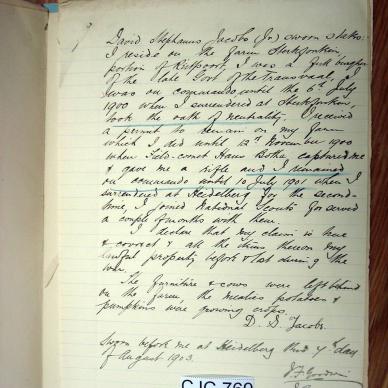 David Stephanus Jacobs (Jr) sworn states:
I reside on the farm Sterkfontein,
portion of Rietpoort I was a full burgher
of the late Govt of the Transvaal,
I was on commando until the 6th July
1900 when I surrendered at Sterkfontein,
took the oath of neutrality. I received
a permit to remain on my farm
which I did until 12th November 1900
when Feld-cornet Hans Botha captured me
& gave me a rifle and I remained
on commando until 10 July 1901 when I
surrendered at Heidelberg for the second
time, I joined National Scouts & served
a couple of months with them.
I declare that my claim is true
& correct & all the items thereon my
lawful property before & lost during the
war.
The furniture & cows were left behind
on the farm, the mealies potatoes &
pumpkins were growing crops.
D. S. Jacobs.
Sworn before me at Heidelberg this 4th day
of August 1903.
CJC 769